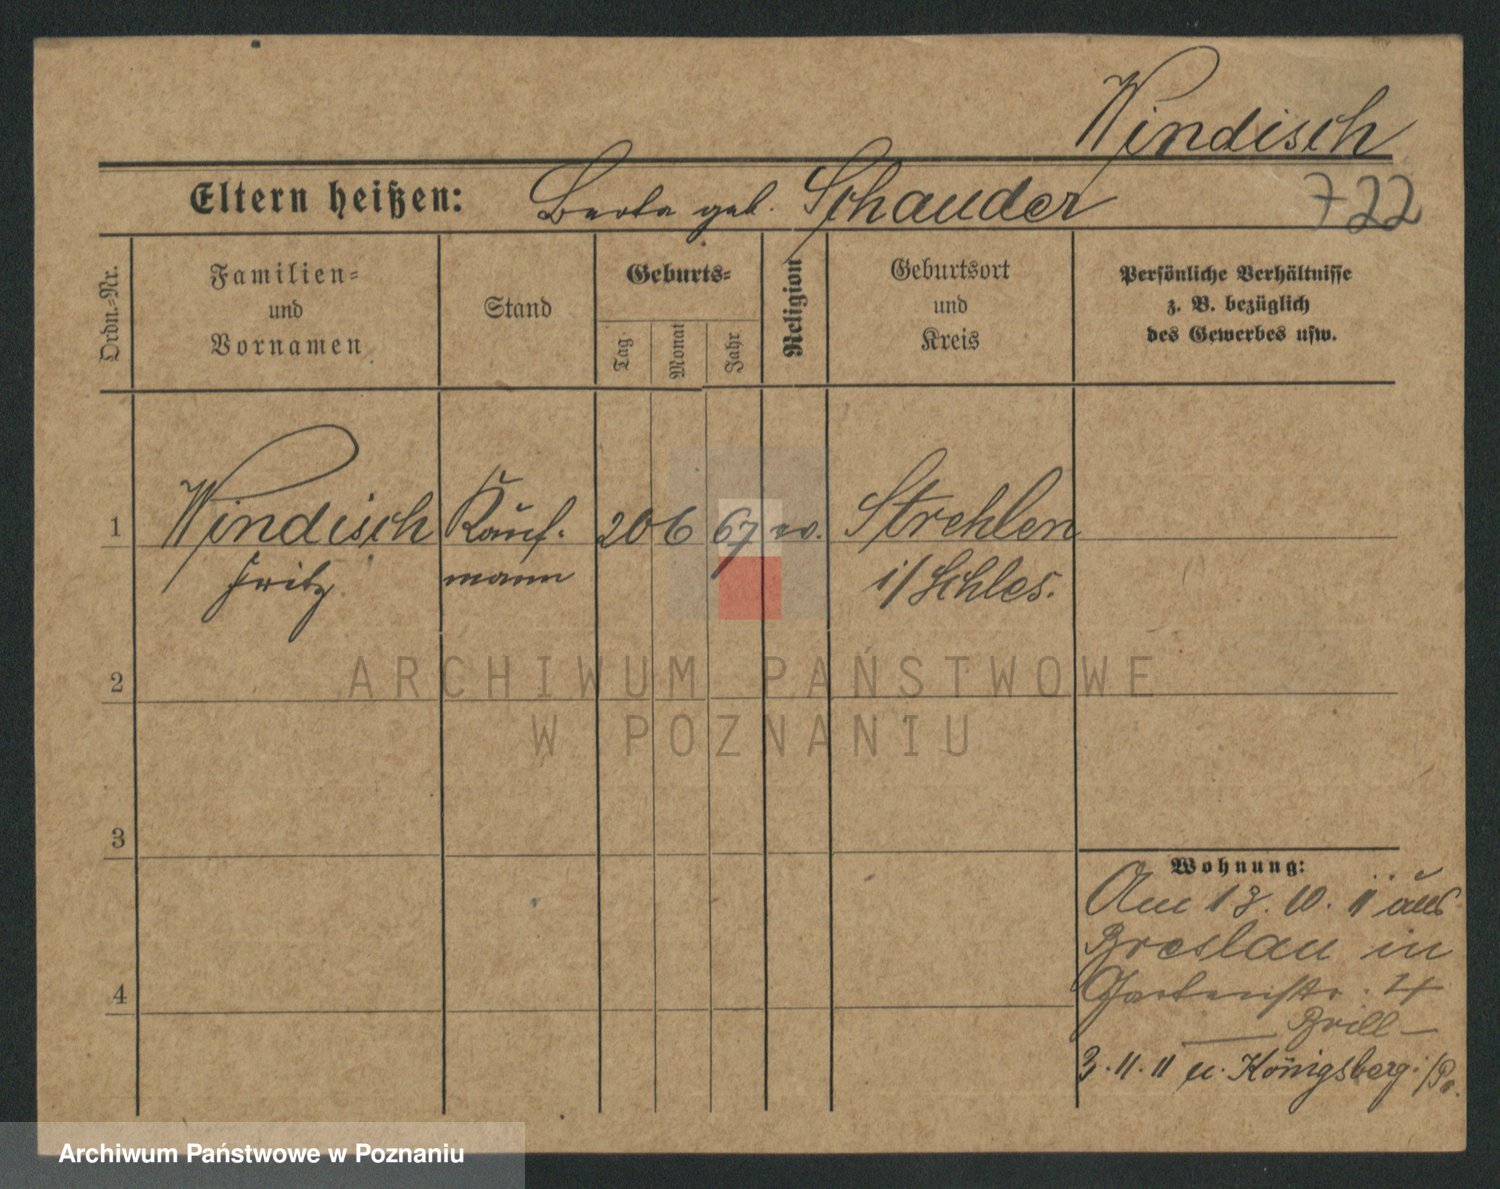 Windisch
Eltern heißen: Berta geb. Schauder
722
Ordn.-Nr.
Familien-
und
Vornamen
Stand
Geburts-
Tag
Monat
Jahr
Religion
Geburtsort
und
Kreis
Persönliche Verhältnisse
z. B. bezüglich
des Gewerbes usw.
1 Windisch Kauf- 20 6 67 ev. Strehlen
Fritz mann i/Schles.
2
ARCHIWUM PAŃSTWOWE
W POZNANIU
3
Wohnung:
Am 13. 10. 11 aus
Breslau in
4 Gartenstr. 4
Brill
3. 11. 11 n. Königsberg i/Pr.
Archiwum Państwowe w Poznaniu